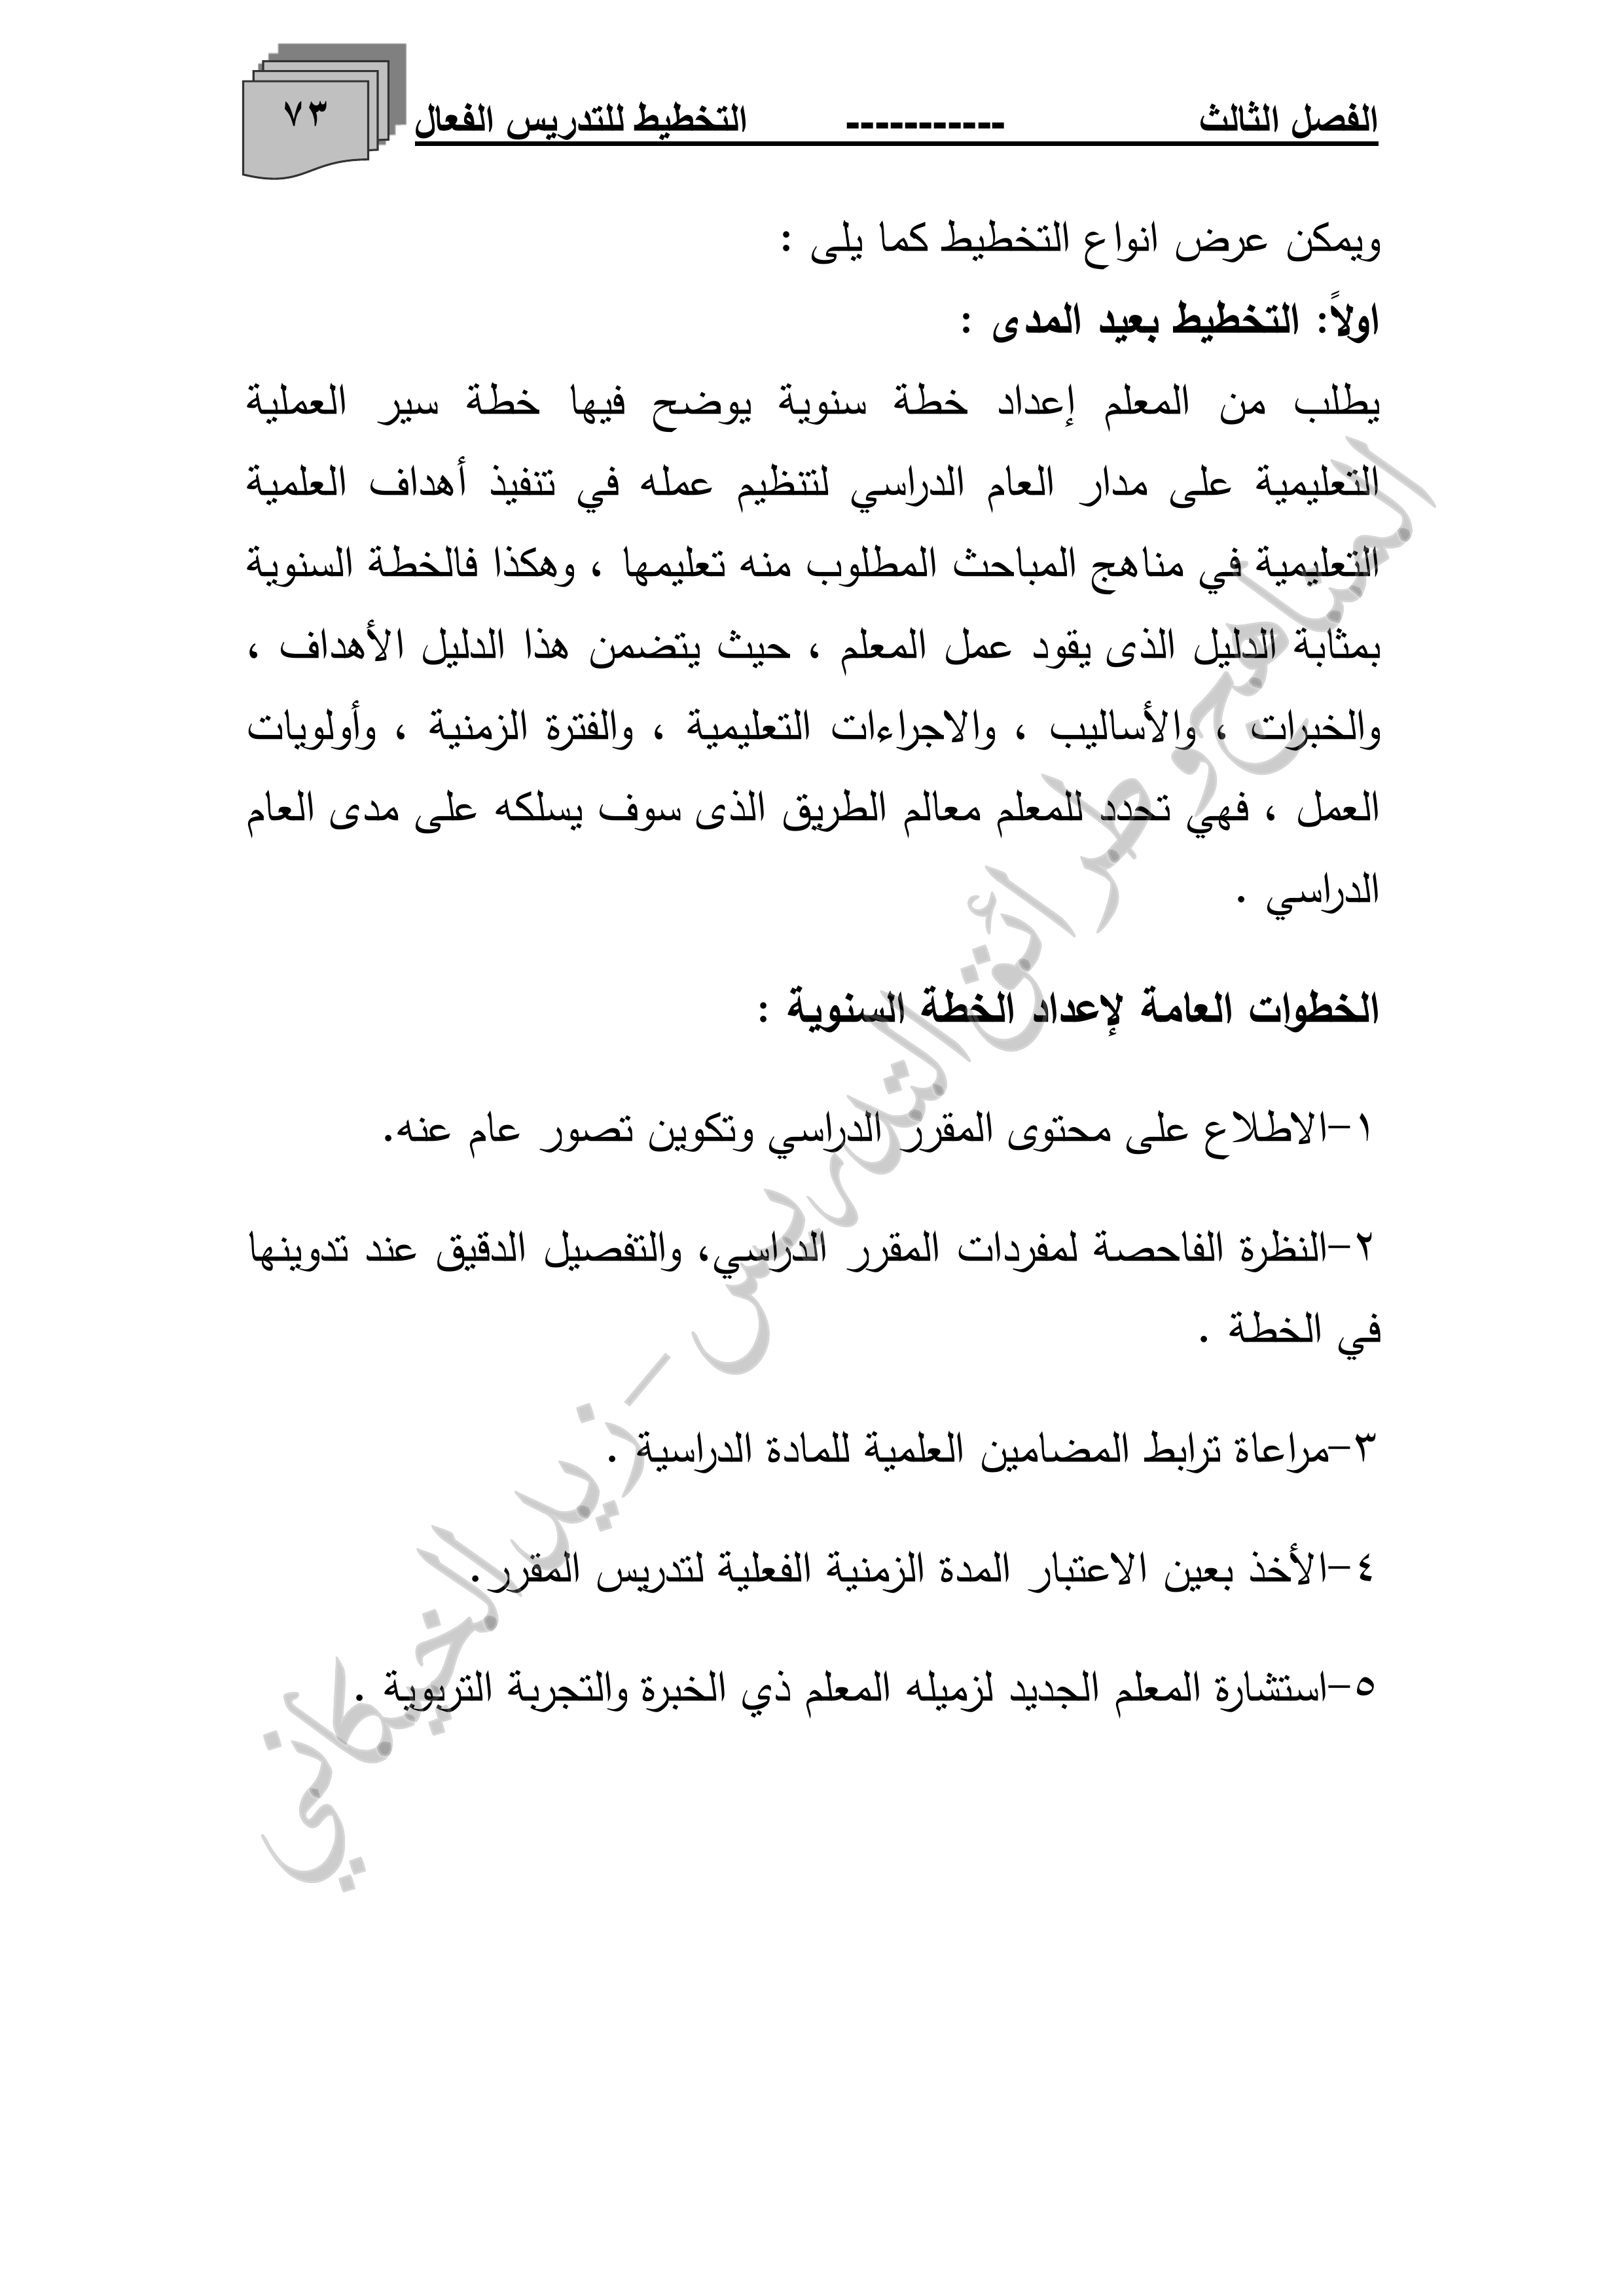 الفصل الثالث ----------- التخطيط للتدريس الفعال ٧٣
ويمكن عرض انواع التخطيط كما يلى :
اولاً: التخطيط بعيد المدى :
يطلب من المعلم إعداد خطة سنوية يوضح فيها خطة سير العملية
التعليمية على مدار العام الدراسي لتنظيم عمله في تنفيذ أهداف العلمية
التعليمية في مناهج المباحث المطلوب منه تعليمها ، وهكذا فالخطة السنوية
بمثابة الدليل الذى يقود عمل المعلم ، حيث يتضمن هذا الدليل الأهداف ،
والخبرات ، والأساليب ، والاجراءات التعليمية ، والفترة الزمنية ، وأولويات
العمل ، فهي تحدد للمعلم معالم الطريق الذى سوف يسلكه على مدى العام
الدراسي .
الخطوات العامة لإعداد الخطة السنوية :
١-الاطلاع على محتوى المقرر الدراسي وتكوين تصور عام عنه.
٢-النظرة الفاحصة لمفردات المقرر الدراسي، والتفصيل الدقيق عند تدوينها
في الخطة .
٣-مراعاة ترابط المضامين العلمية للمادة الدراسية .
٤-الأخذ بعين الاعتبار المدة الزمنية الفعلية لتدريس المقرر.
٥-استشارة المعلم الجديد لزميله المعلم ذي الخبرة والتجربة التربوية .
المناهج وطرائق التدريس - زيد الخيكاني